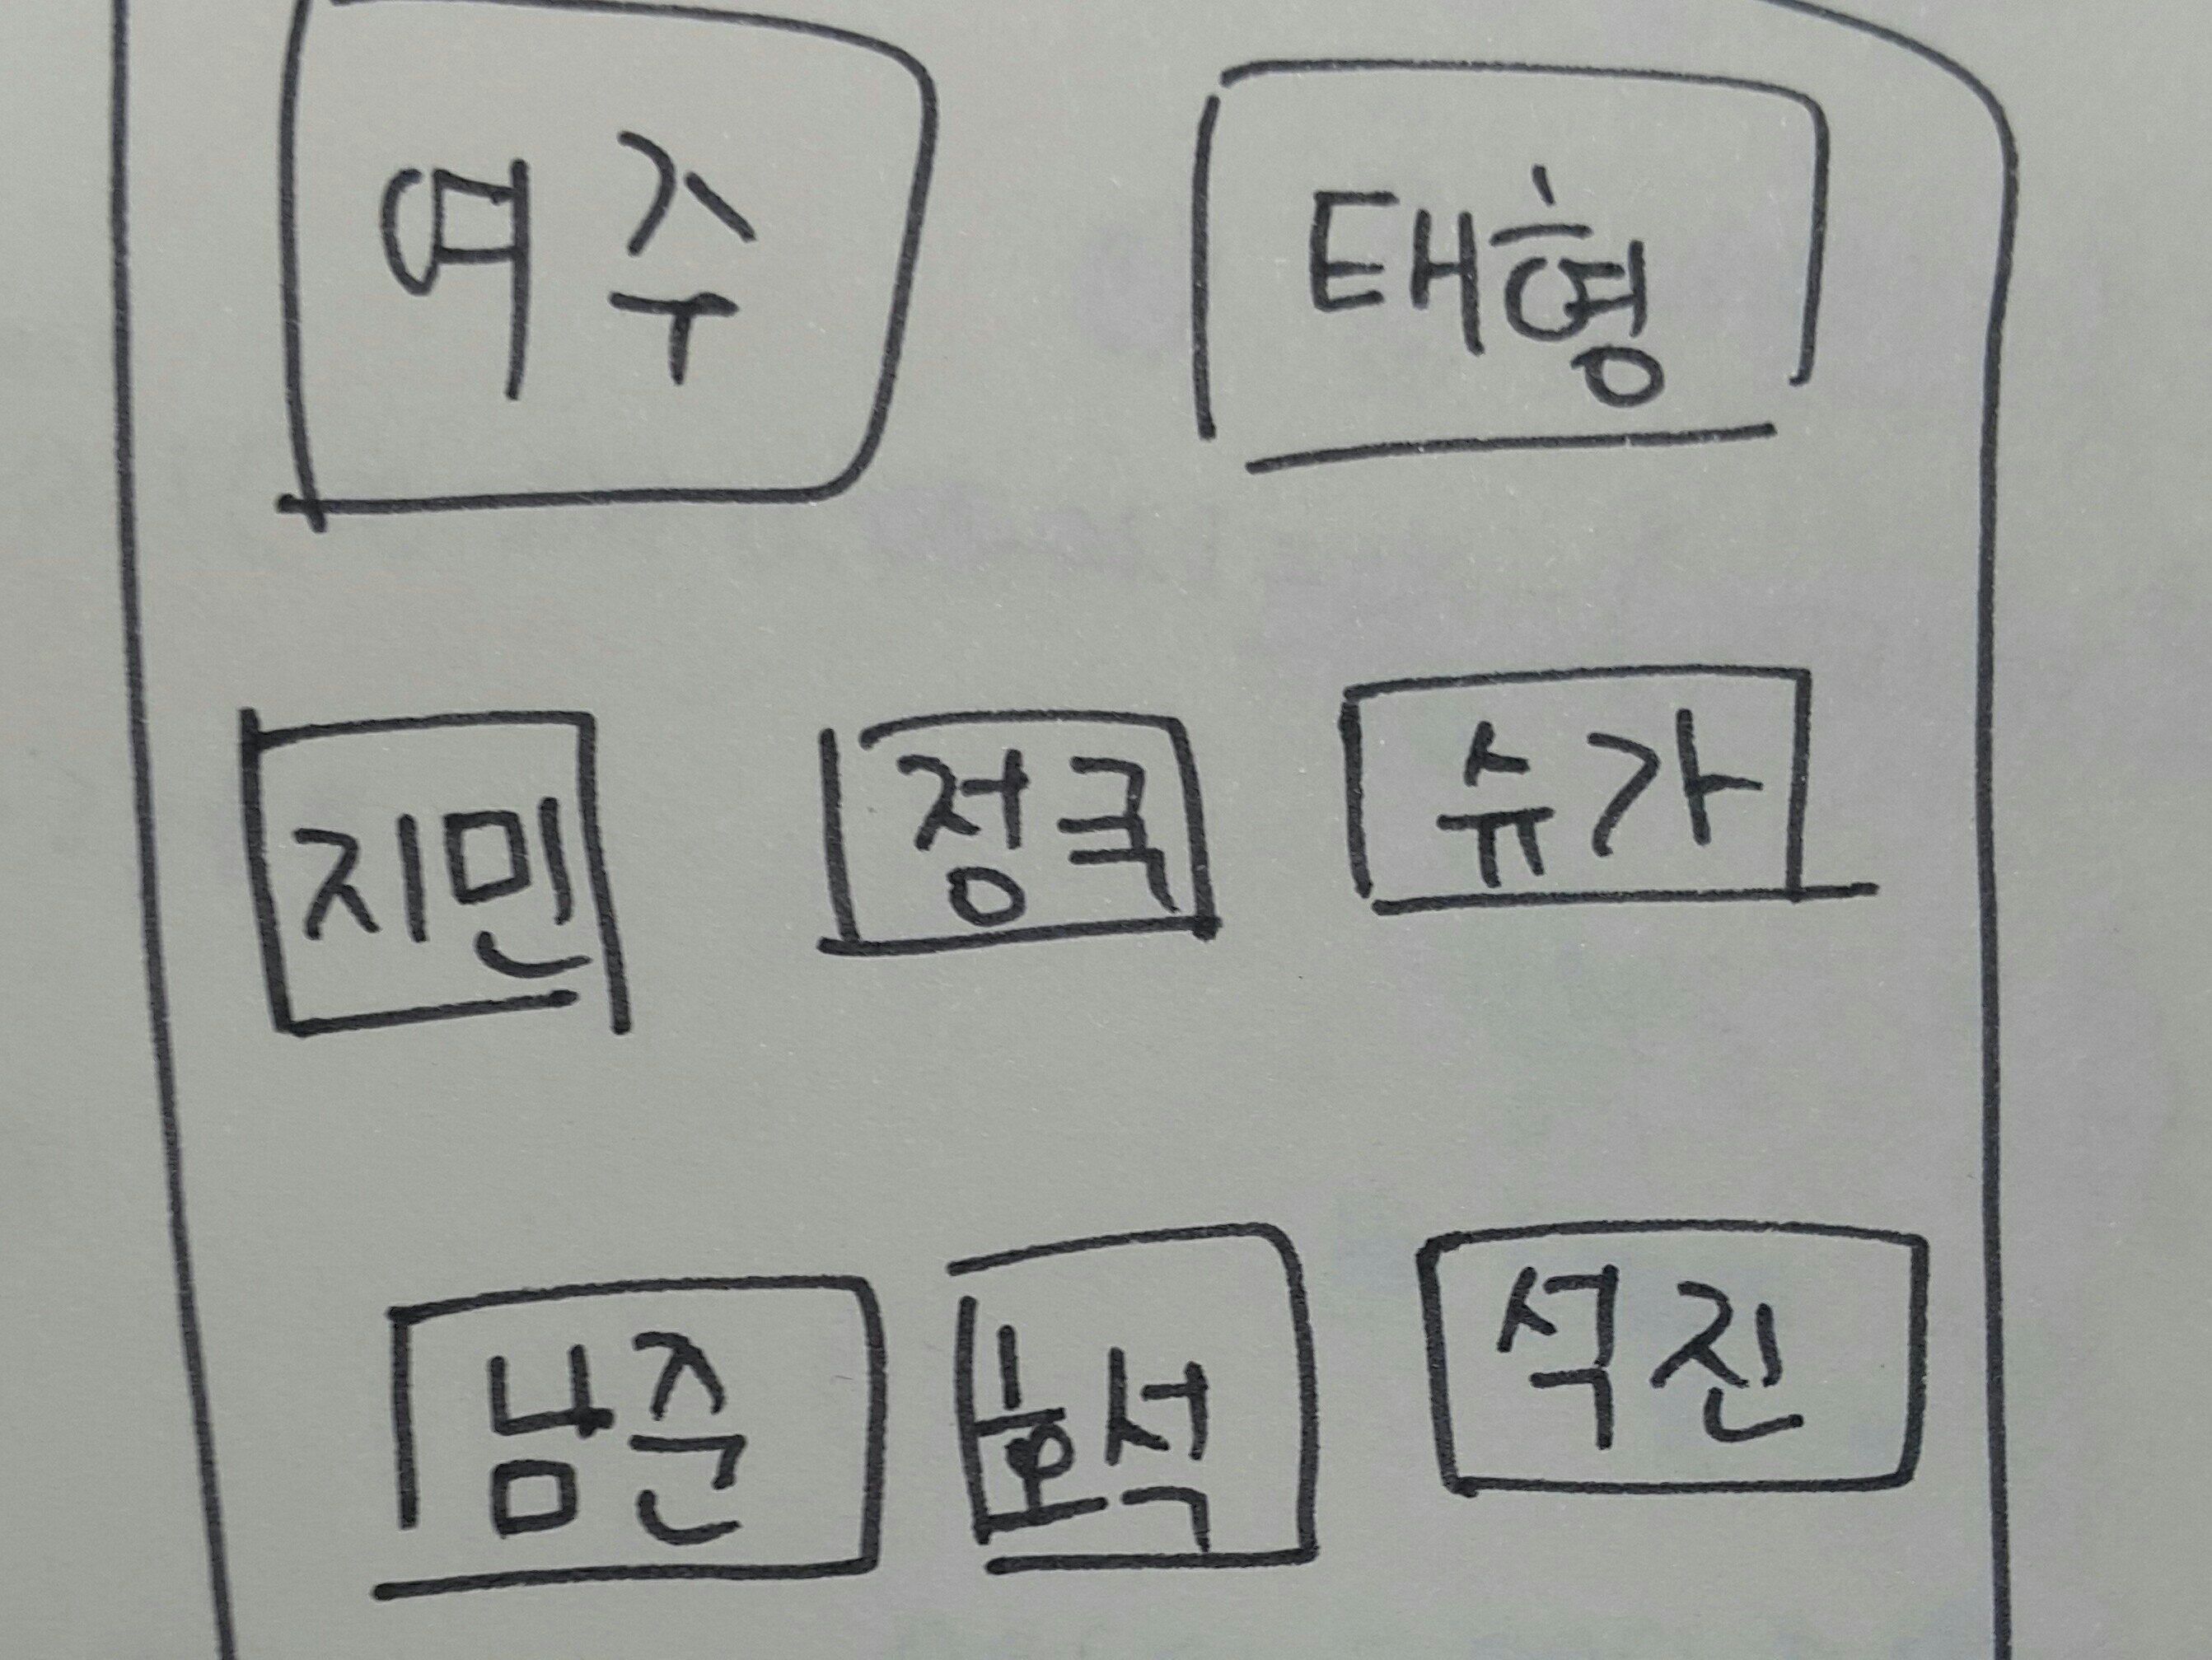 여주 태형
지민 정국 슈가
남준 호석 석진